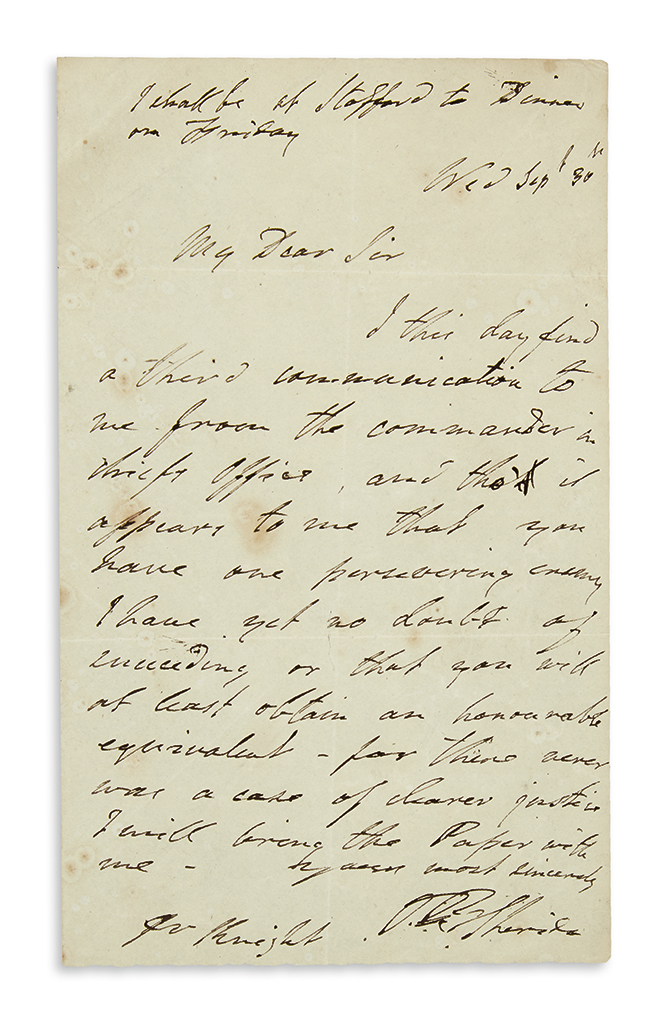 I shall be at Stafford to Dinner
on Friday
Wed Sept 30th
My Dear Sir
I this day find
a third communication to
me from the commander in
chiefs Office, and tho' it
appears to me that you
have one persevering enemy
I have yet no doubt of
succeeding or that you will
at least obtain an honourable
equivalent - for there never
was a case of clearer justice
I will bring the Paper with
me - yours most sincerely
Knight R B Sheridan